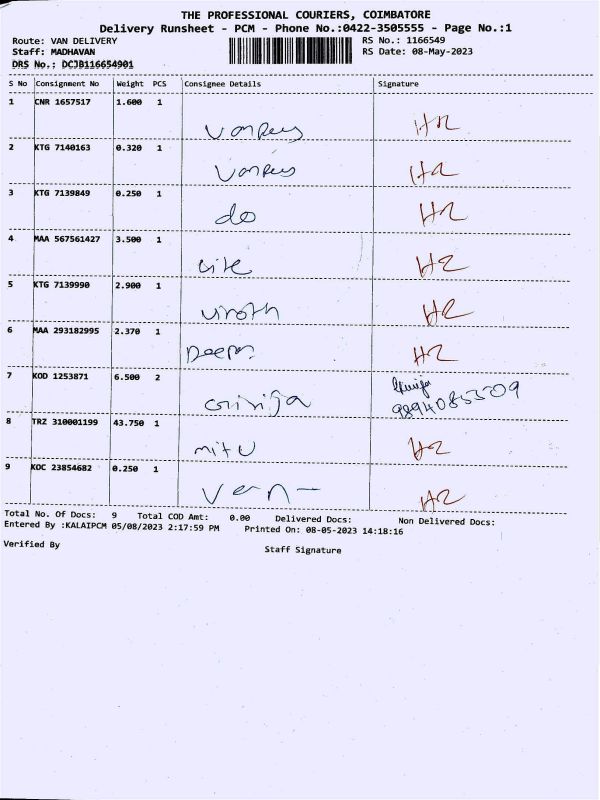 THE PROFESSIONAL COURIERS, COIMBATORE
Delivery Runsheet - PCM - Phone No.:0422-3505555 - Page No.:1
Route: VAN DELIVERY
RS No.: 1166549
Staff: MADHAVAN
RS Date: 08-May-2023
DRS No.: DCJB116654901
S No Consignment No Weight PCS Consignee Details Signature
1 CNR 1657517 1.600 1
2 KTG 7140163 0.320 1
3 KTG 7139849 0.250 1 do
4 MAA 567561427 3.500 1
5 KTG 7139990 2.900 1
6 MAA 293182995 2.370 1
7 KOD 1253871 6.500 2
8 TRZ 310001199 43.750 1
9 KOC 23854682 0.250 1
Total No. Of Docs: 9 Total COD Amt: 0.00 Delivered Docs: Non Delivered Docs:
Entered By :KALAIPCM 05/08/2023 2:17:59 PM Printed On: 08-05-2023 14:18:16
Verified By Staff Signature